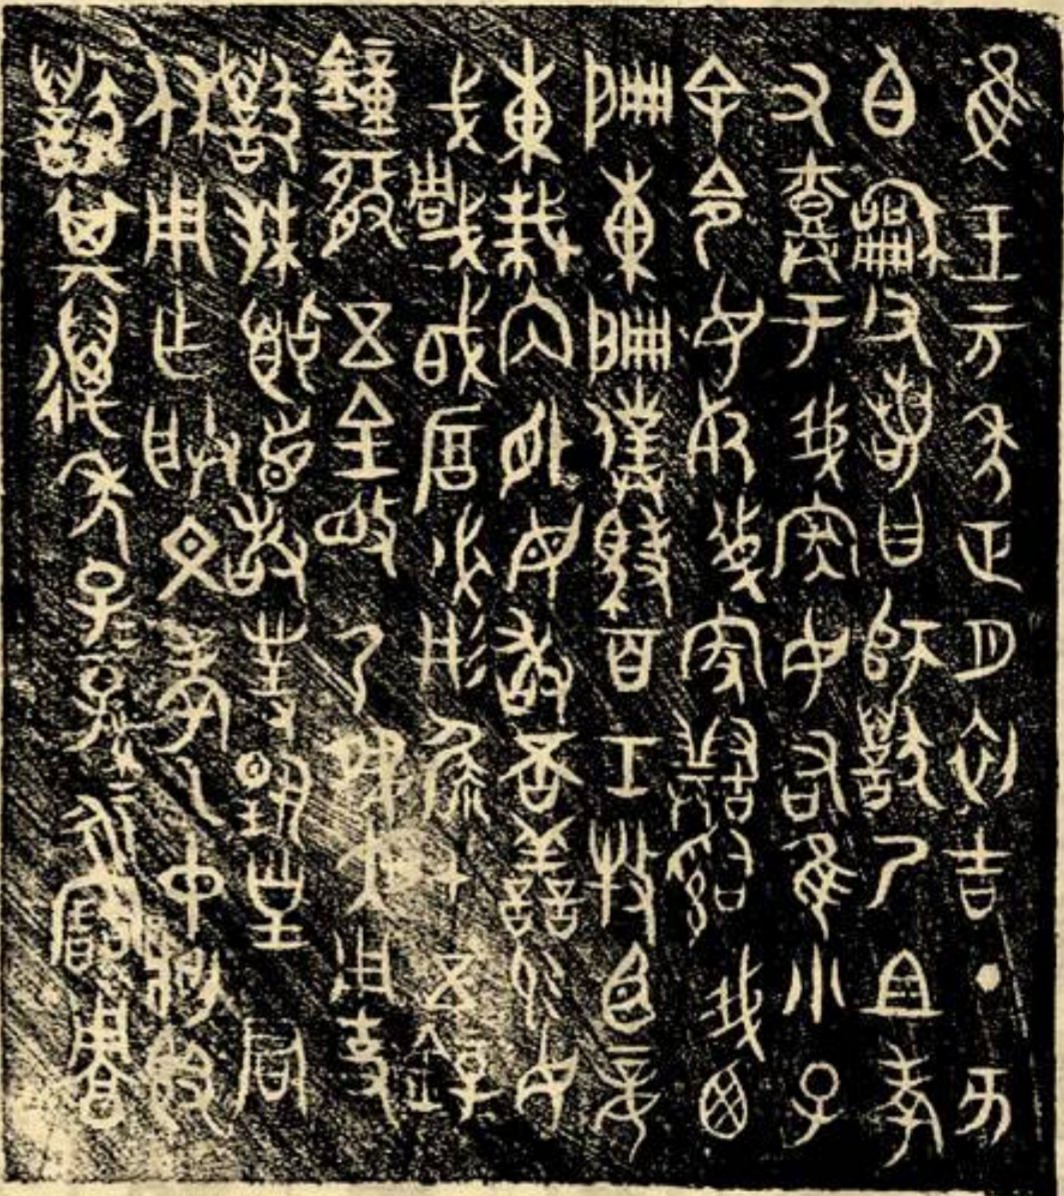 隹王元年正月初吉丁亥
白龢父若曰師𠭰乃且考
又𡐦于我家女有隹小子
余令女死我家𤔲我西
扁東扁僕馭百工牧臣妾
東裁內外毋敢否善易女
戈琱㦸必彤沙十五錞
鐘磬五金敬乃夙夜用事
𠭰拜𩒨首敢對揚皇君
休用乍朕文考乙中𣪘
𠭰其萬年子=孫=永寶用享